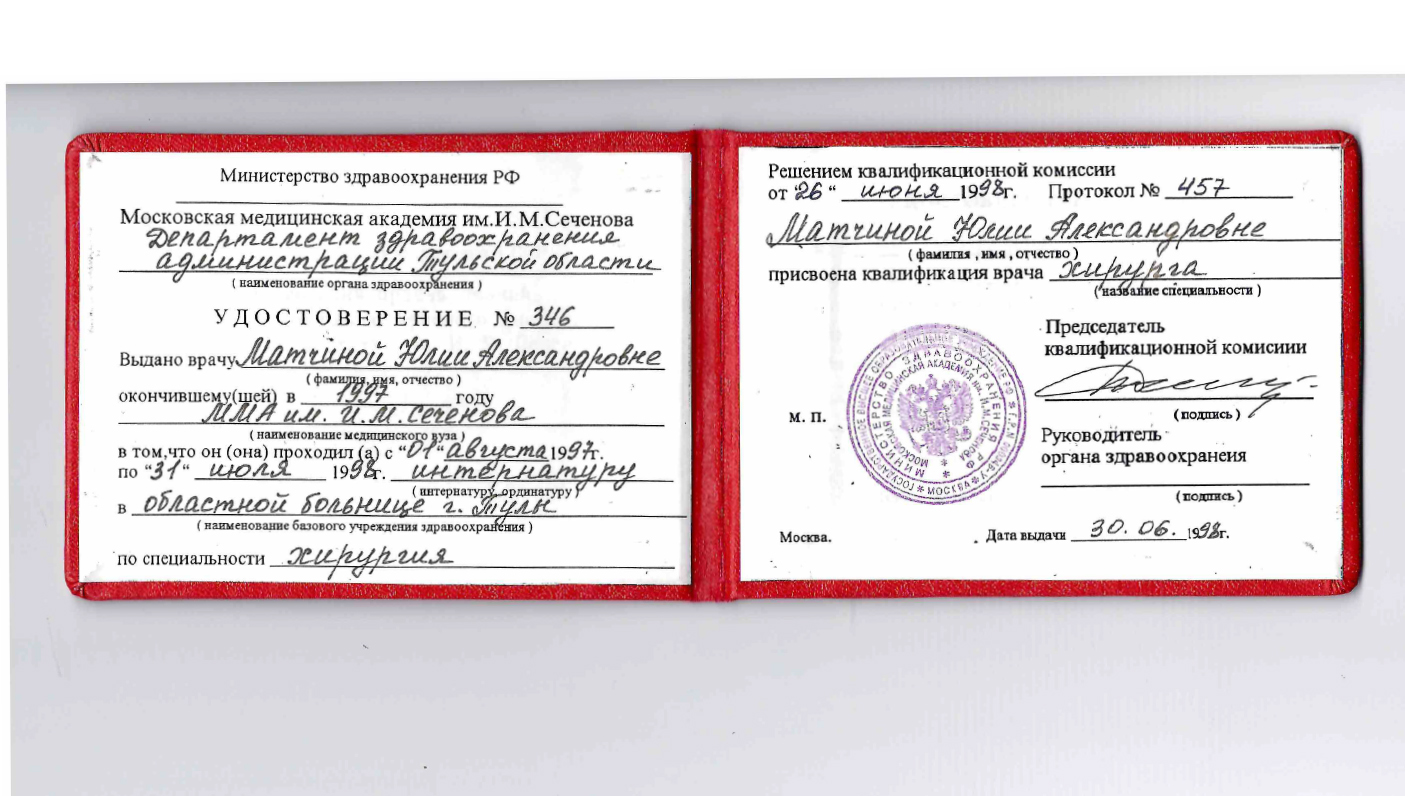 Министерство здравоохранения РФ
Московская медицинская академия им.И.М.Сеченова
Департамент здравоохранения
администрации Тульской области
( наименование органа здравоохранения )
УДОСТОВЕРЕНИЕ № 346
Выдано врачу Матчиной Юлии Александровне
( фамилия, имя, отчество )
окончившему(шей) в 1997 году
ММА им. И.М.Сеченова
( наименование медицинского вуза )
в том,что он (она) проходил (а) с “01“ августа 1997г.
по “31“ июля 1998г. интернатуру
( интернатуру, ординатуру )
в областной больнице г. Тулы
( наименование базового учреждения здравоохранения )
по специальности хирургия
Решением квалификационной комиссии
от “26“ июня 1998г. Протокол № 457
Матчиной Юлии Александровне
( фамилия , имя , отчество )
присвоена квалификация врача хирурга
( название специальности )
Председатель
квалификационной комисиии
( подпись )
М. П.
МИНИСТЕРСТВО ЗДРАВООХРАНЕНИЯ РФ
МОСКОВСКАЯ МЕДИЦИНСКАЯ АКАДЕМИЯ ИМ. И.М. СЕЧЕНОВА
Руководитель
органа здравоохранеия
( подпись )
Москва. Дата выдачи 30. 06. 1998г.